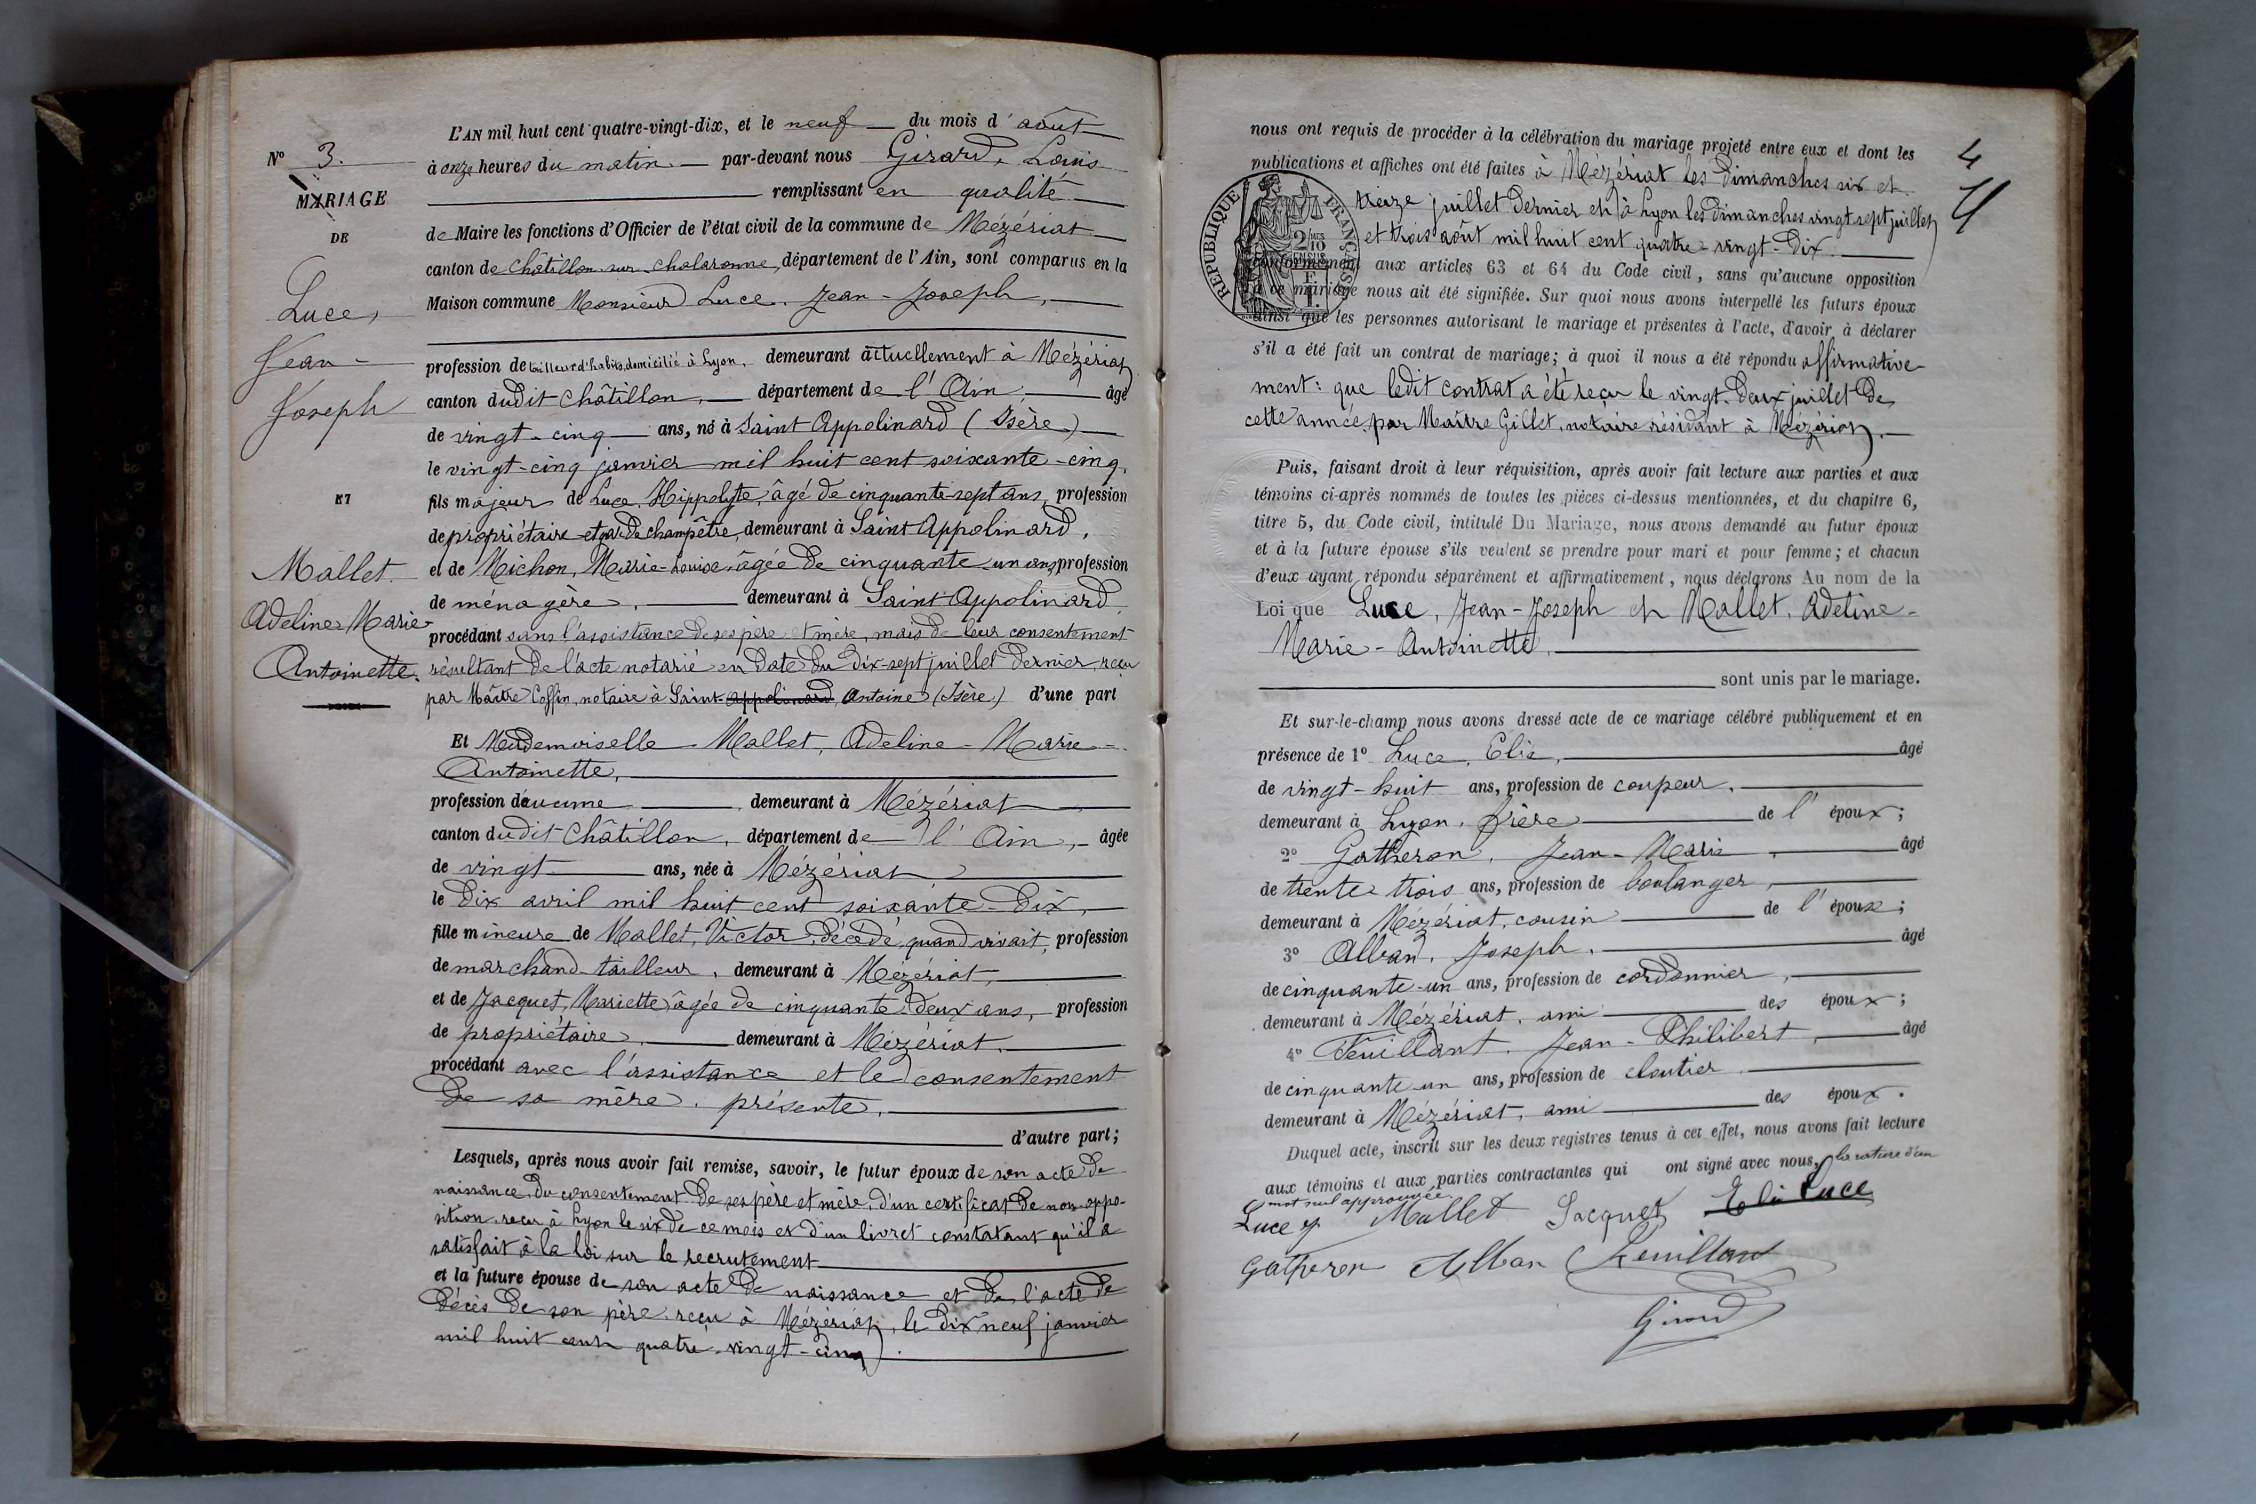 N° 3.
MARIAGE
DE
Luce,
Jean-
Joseph
ET
Mallet
Adeline-Marie-
Antoinette.
L'AN mil huit cent quatre-vingt-dix, et le neuf du mois d'août
à onze heures du matin. par-devant nous Girard, Louis
remplissant en qualité
de Maire les fonctions d'Officier de l'état civil de la commune de Mézériat
canton de Châtillon-sur-Chalaronne, département de l'Ain, sont comparus en la
Maison commune Monsieur Luce, Jean-Joseph,
profession de tailleur d'habits, domicilié à Lyon, demeurant actuellement à Mézériat
canton dudit Châtillon, département de l'Ain, âgé
de vingt-cinq ans, né à Saint Appolinard (Isère)
le vingt-cinq janvier mil huit cent soixante-cinq,
fils majeur de Luce, Hippolyte, âgé de cinquante-sept ans, profession
de propriétaire et garde champêtre, demeurant à Saint Appolinard,
et de Michon, Marie-Louise, âgée de cinquante-un ans, profession
de ménagère, demeurant à Saint Appolinard,
procédant sans l'assistance de ses père et mère, mais de leur consentement
résultant de l'acte notarié en date du dix-sept juillet dernier, reçu
par Maître Coffin, notaire à Saint-Appolinard, Antoine (Isère) d'une part
Et Mademoiselle Mallet, Adeline-Marie-
Antoinette,
profession d'aucune demeurant à Mézériat
canton dudit Châtillon, département de l'Ain, âgée
de vingt ans, née à Mézériat
le dix avril mil huit cent soixante-dix,
fille mineure de Mallet, Victor, décédé, quand vivait, profession
de marchand-tailleur, demeurant à Mézériat,
et de Jacquet, Mariette, âgée de cinquante-deux ans, profession
de propriétaire, demeurant à Mézériat,
procédant avec l'assistance et le consentement
de sa mère, présente,
d'autre part;
Lesquels, après nous avoir fait remise, savoir, le futur époux de son acte de
naissance, du consentement de ses père et mère, d'un certificat de non-oppo-
sition reçu à Lyon le six de ce mois et d'un livret constatant qu'il a
satisfait à la loi sur le recrutement
et la future épouse de son acte de naissance et de l'acte de
décès de son père reçu à Mézériat, le dix-neuf janvier
mil huit cent quatre-vingt-cinq.
4
nous ont requis de procéder à la célébration du mariage projeté entre eux et dont les
publications et affiches ont été faites à Mézériat les dimanches six et
treize juillet dernier et à Lyon les dimanches vingt sept juillet
et trois août mil huit cent quatre-vingt-dix.
RÉPUBLIQUE FRANÇAISE
2/10 EN SUS
conformément aux articles 63 et 64 du Code civil, sans qu'aucune opposition
à ce mariage nous ait été signifiée. Sur quoi nous avons interpellé les futurs époux
ainsi que les personnes autorisant le mariage et présentes à l'acte, d'avoir à déclarer
s'il a été fait un contrat de mariage; à quoi il nous a été répondu affirmative-
ment: que ledit contrat a été reçu le vingt-deux juillet de
cette année par Maître Gillet, notaire résidant à Mézériat.
Puis, faisant droit à leur réquisition, après avoir fait lecture aux parties et aux
témoins ci-après nommés de toutes les pièces ci-dessus mentionnées, et du chapitre 6,
titre 5, du Code civil, intitulé Du Mariage, nous avons demandé au futur époux
et à la future épouse s'ils veulent se prendre pour mari et pour femme; et chacun
d'eux ayant répondu séparément et affirmativement, nous déclarons Au nom de la
Loi que Luce, Jean-Joseph et Mallet, Adeline-
Marie-Antoinette,
sont unis par le mariage.
Et sur-le-champ nous avons dressé acte de ce mariage célébré publiquement et en
présence de 1° Luce, Elie, âgé
de vingt-huit ans, profession de coupeur,
demeurant à Lyon, frère de l'époux;
2° Gatheron, Jean-Marie, âgé
de trente-trois ans, profession de boulanger,
demeurant à Mézériat, cousin de l'épouse;
3° Alban, Joseph, âgé
de cinquante-un ans, profession de cordonnier,
demeurant à Mézériat, ami des époux;
4° Feuillant, Jean-Philibert, âgé
de cinquante-un ans, profession de cloutier
demeurant à Mézériat, ami des époux.
Duquel acte, inscrit sur les deux registres tenus à cet effet, nous avons fait lecture
aux témoins et aux parties contractantes qui ont signé avec nous, la rature d'un
mot nul approuvée.
Luce J Mallet Jacquet Elie Luce
Gatheron Alban Feuillant
Girard